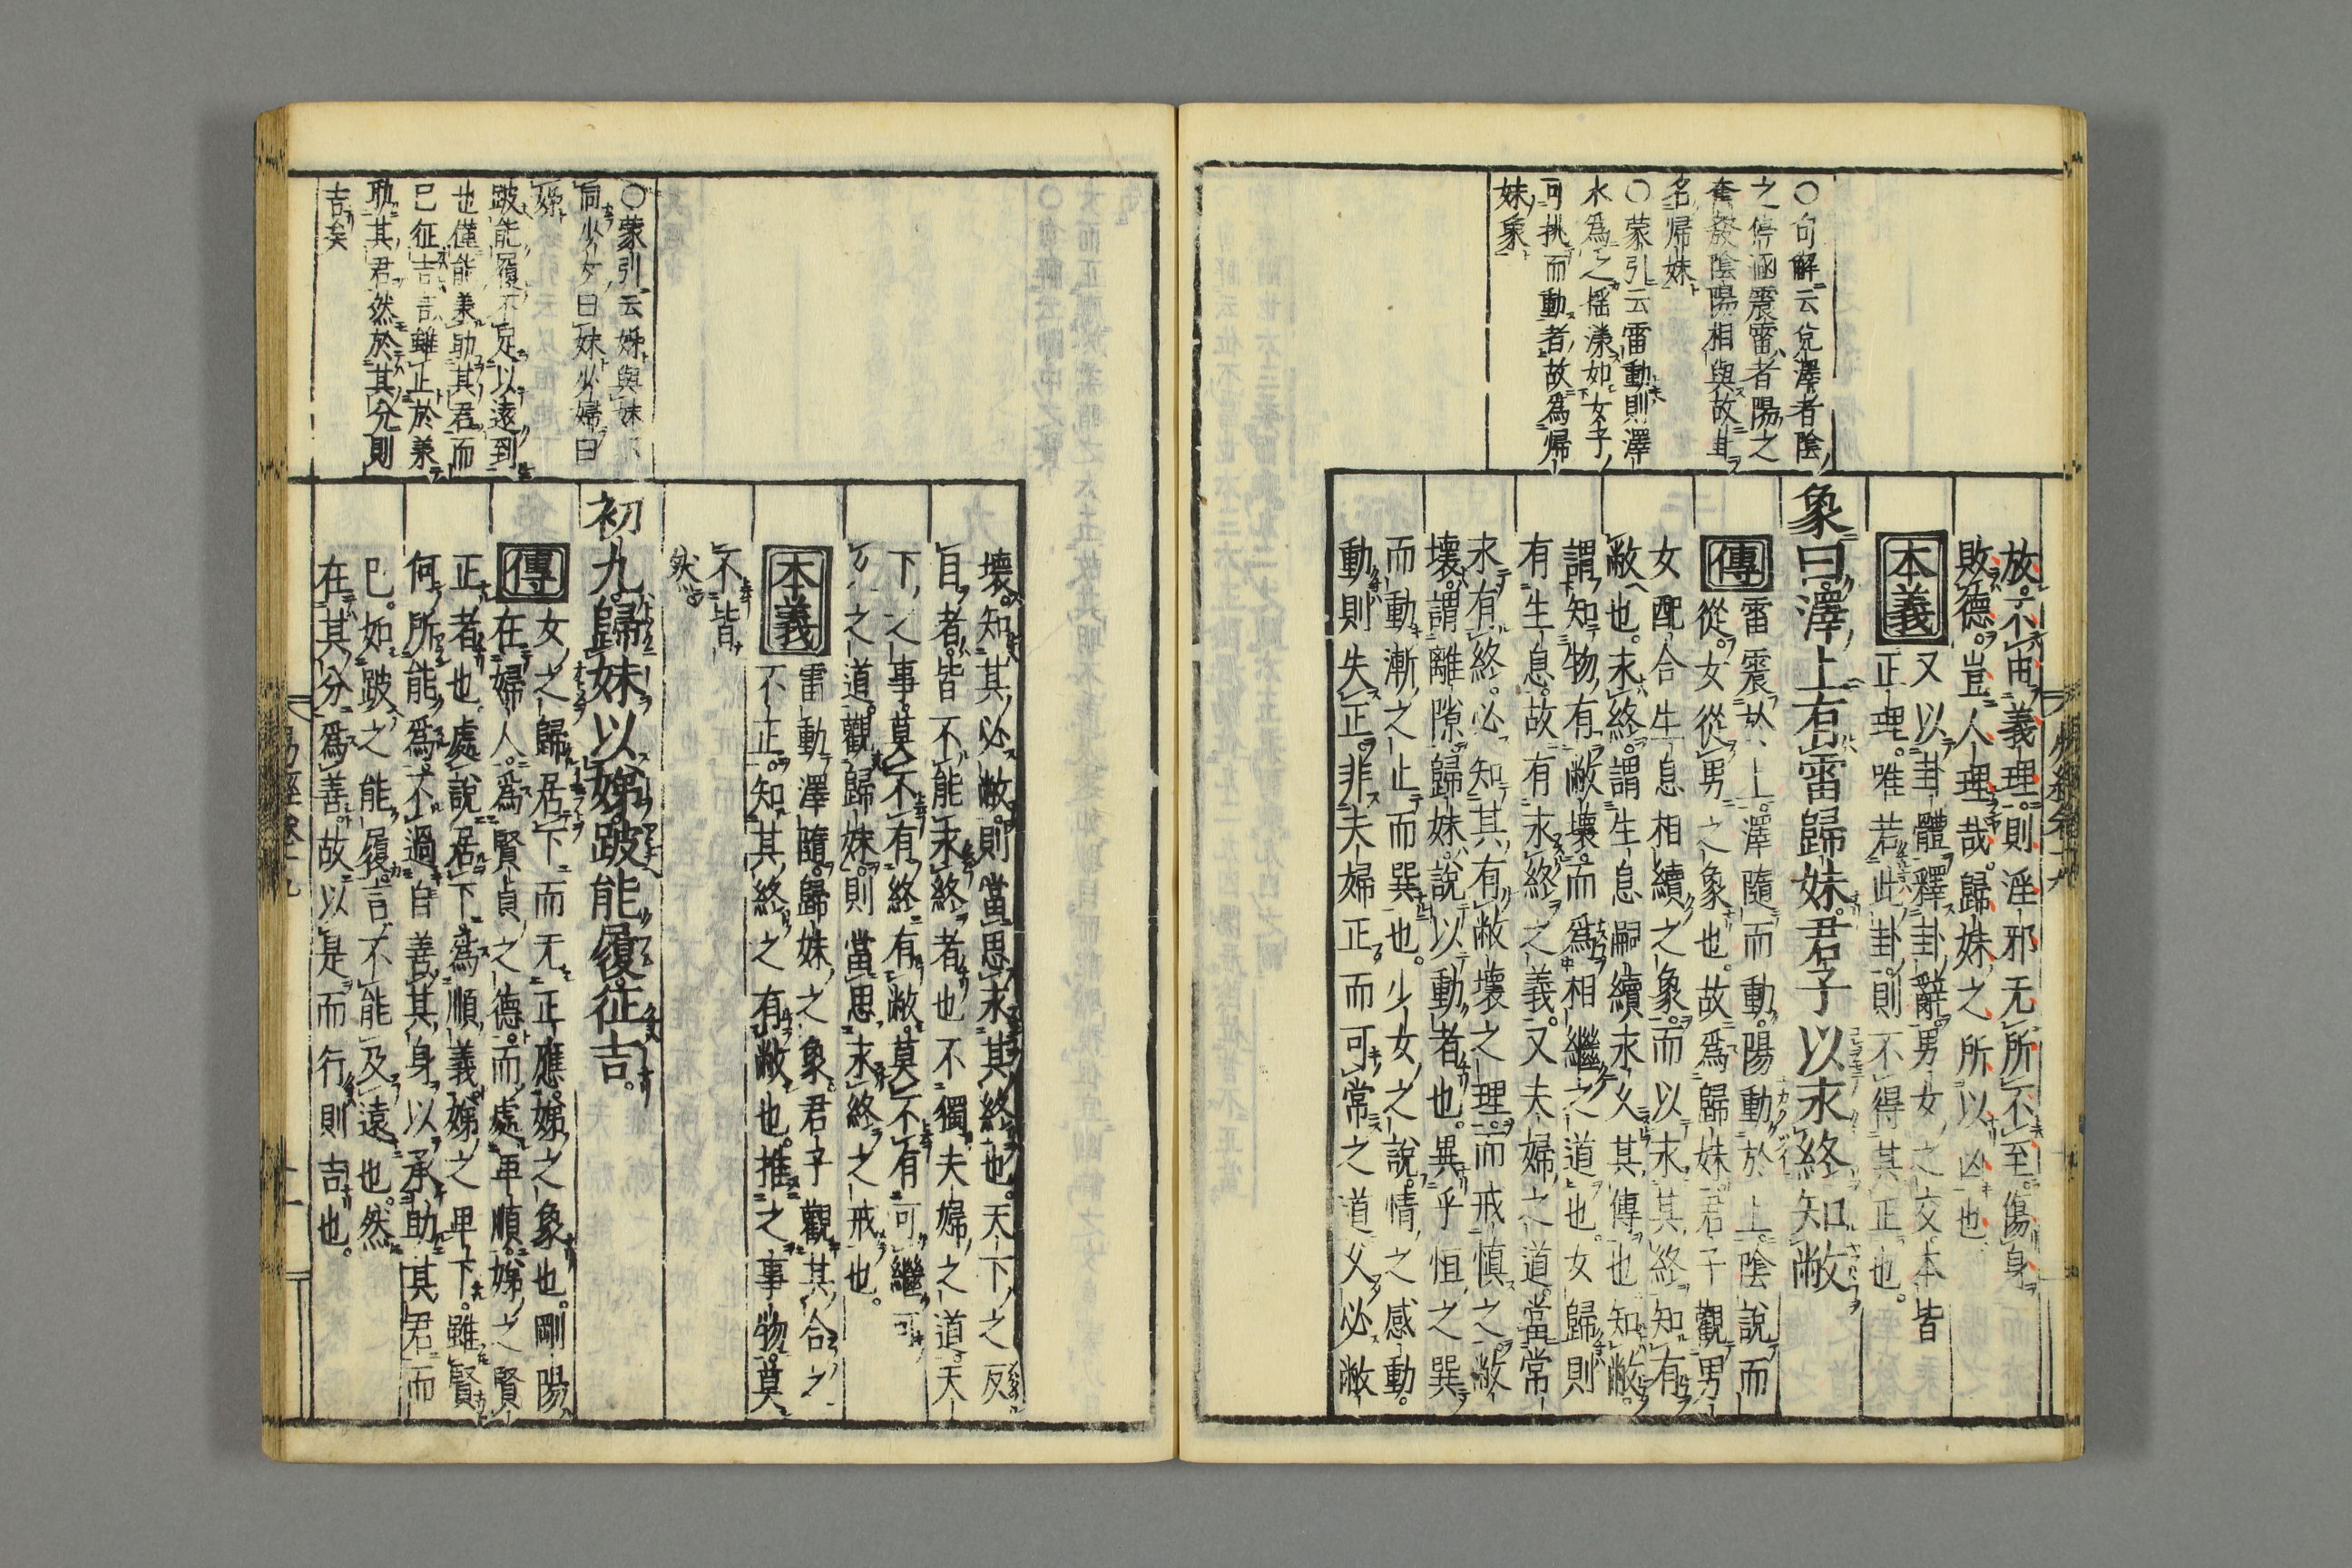 〇句解云兌澤者陰
之停涵震雷者陽之
奮發陰陽相與故其
名歸妹
〇蒙引云雷動則澤
水爲之搖漾如女子
可挑而動者故爲歸
妹象
放不由義理則淫邪无所不至傷身
敗德豈人理哉歸妹之所以凶也
本義
又以卦體釋卦辭男女之交本皆
正理唯若此卦則不得其正也
象曰澤上有雷歸妹君子以永終知敝
傳
雷震於上澤隨而動陽動於上陰說而
從女從男之象也故爲歸妹君子觀男
女配合生息相續之象而以永其終知有
敝也永終謂生息嗣續永久其傳也知敝
謂知物有敝壞而爲相繼之道也女歸則
有生息故有永終之義又夫婦之道當常
永有終必知其有敝壞之理而戒愼之敝
壞謂離隙歸妹說以動者也異乎恒之巽
而動漸之止而巽也少女之說情之感動
動則失正非夫婦正而可常之道久必敝
壞知其必敝則當思永其終也天下之反
目者皆不能永終者也不獨夫婦之道天
下之事莫不有終有敝莫不有可繼可
久之道觀歸妹則當思永終之戒也
本義
雷動澤隨歸妹之象君子觀其合之
不正知其終之有敝也推之事物莫
不皆
然
初九歸妹以娣跛能履征吉
傳
女之歸居下而无正應娣之象也剛陽
在婦人爲賢貞之德而處卑順娣之賢
正者也處說居下爲順義娣之卑下雖賢
何所能爲不過自善其身以承助其君而
已如跛之能履言不能及遠也然
在其分爲善故以是而行則吉也
〇蒙引云娣與妹不
同少女曰妹少婦曰
娣
跛能履不足以遠到
也僅能兼助其君而
已征吉言雖止於兼
助其君然於其分則
吉矣
易經卷十九
十一